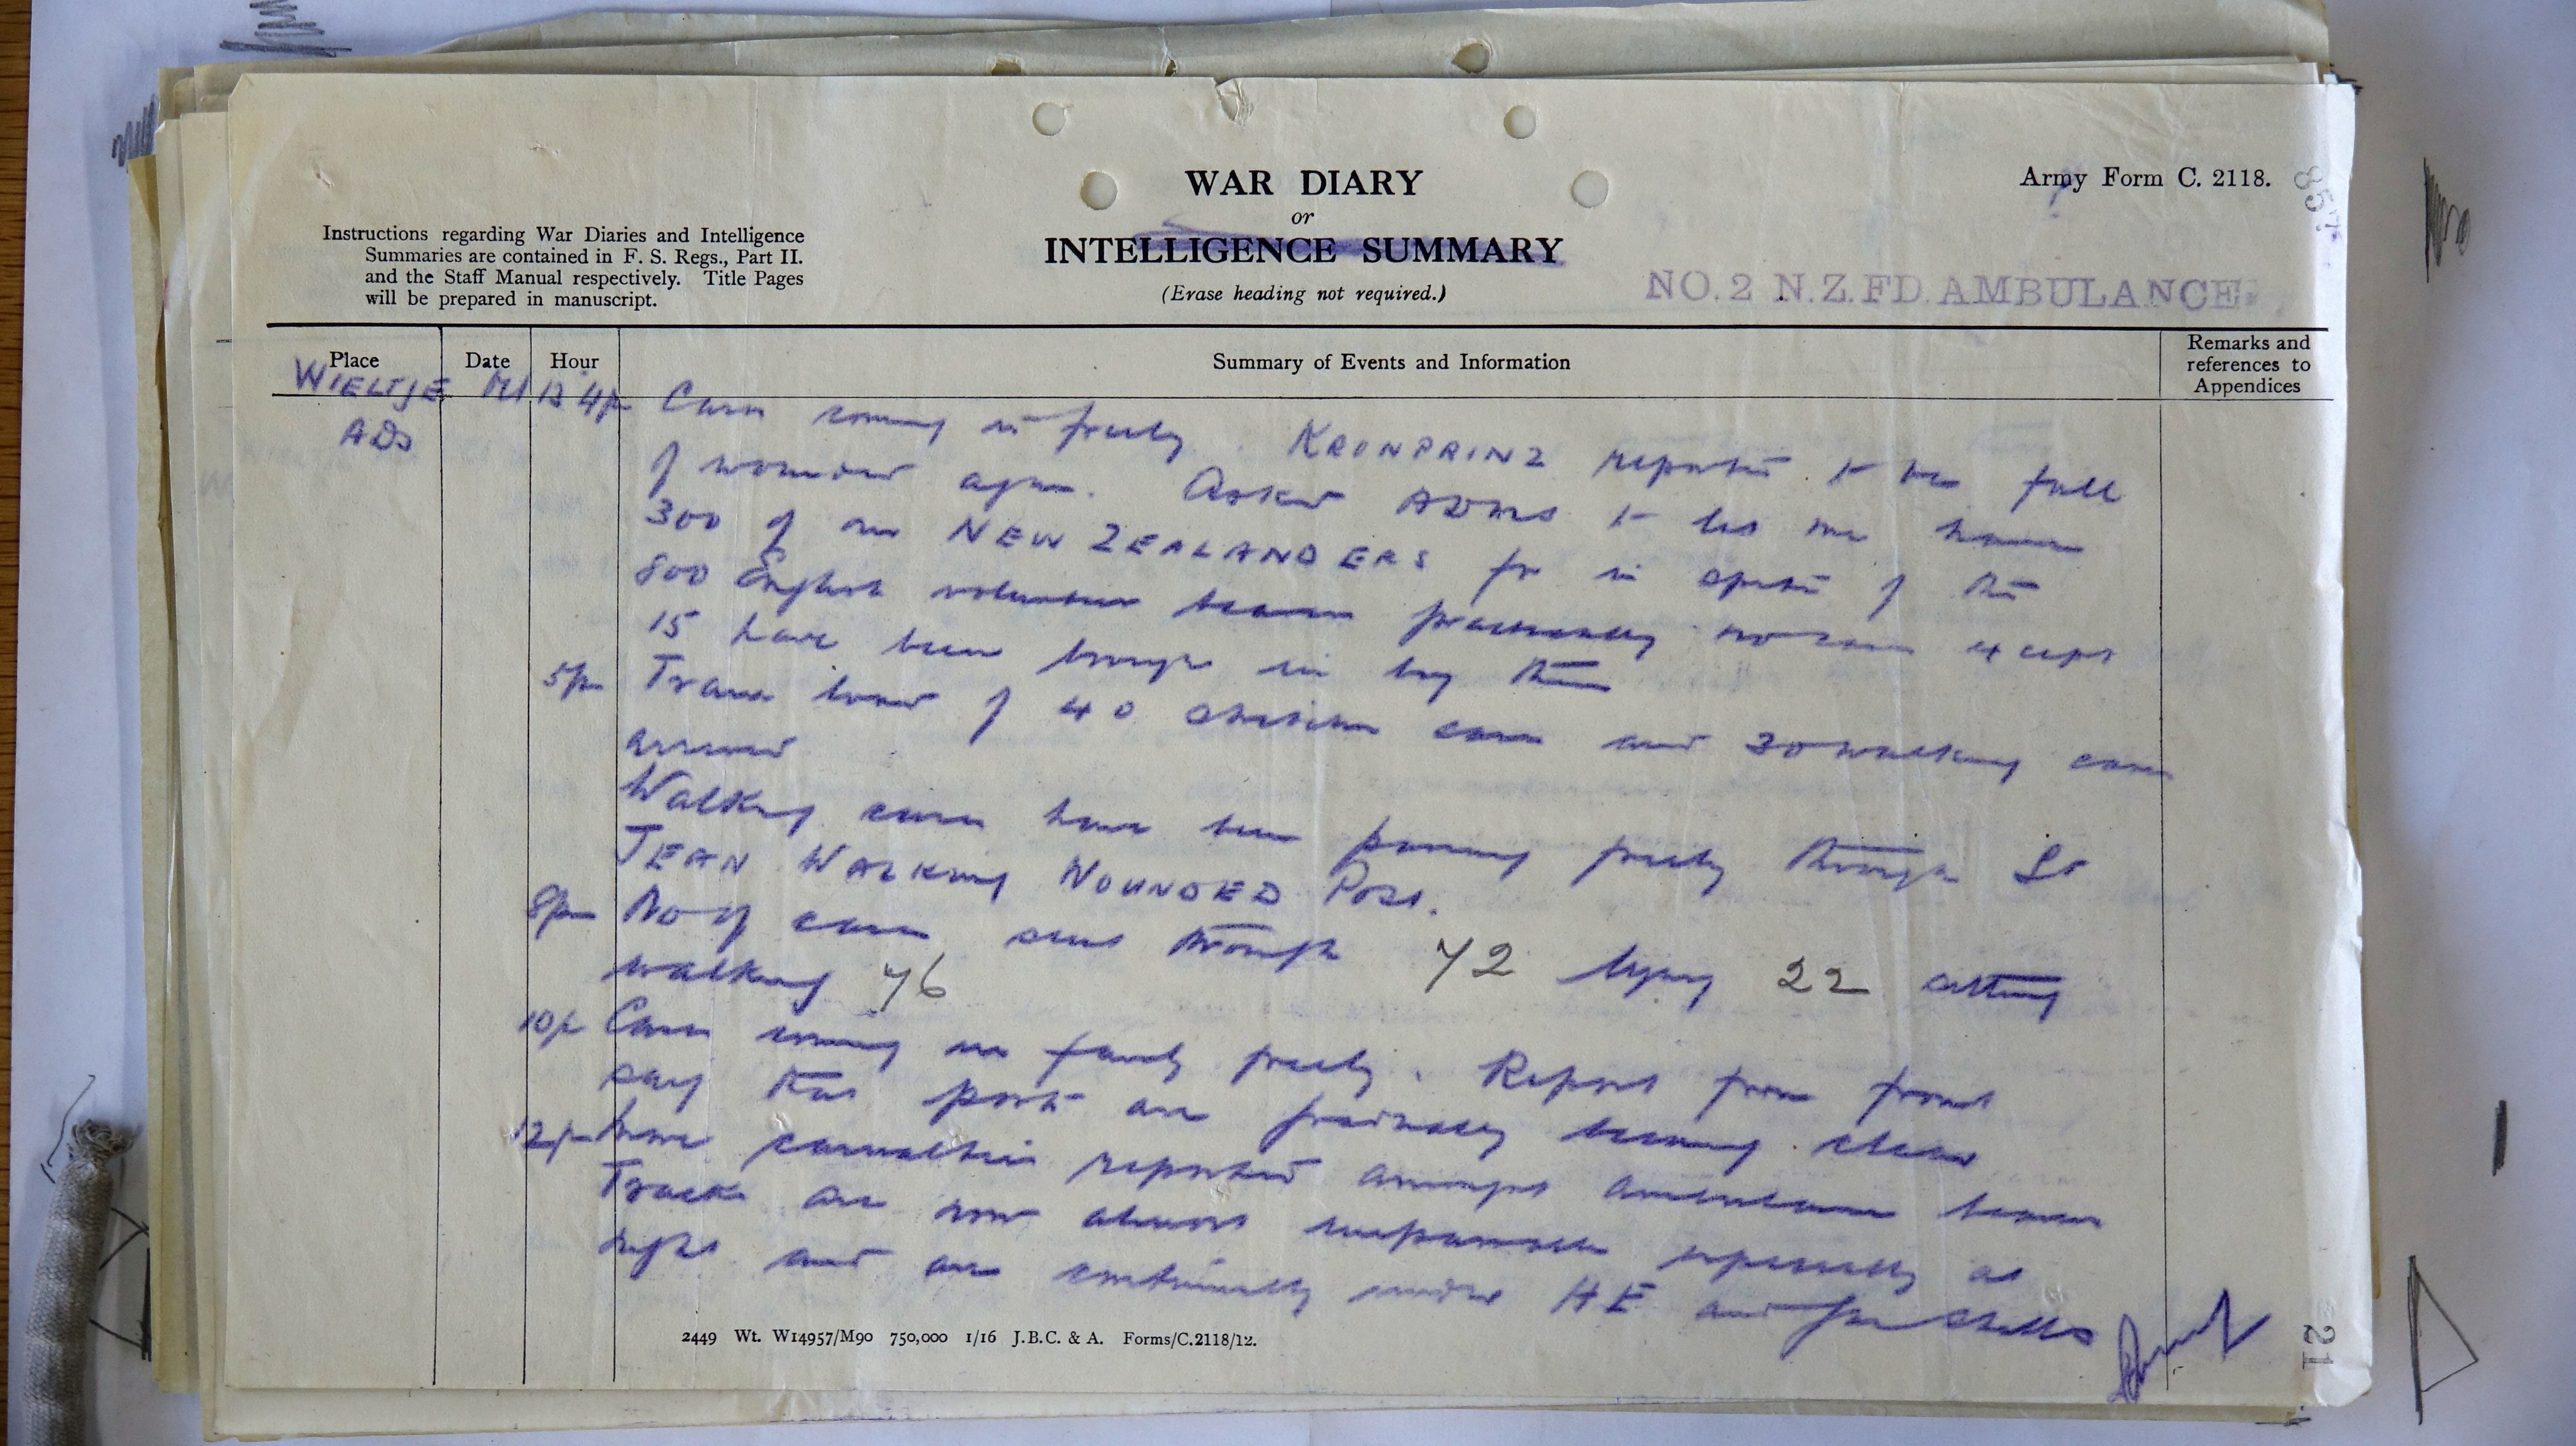 WAR DIARY
or
INTELLIGENCE SUMMARY
(Erase heading not required.)
Army Form C. 2118.
Instructions regarding War Diaries and Intelligence
Summaries are contained in F. S. Regs., Part II.
and the Staff Manual respectively. Title Pages
will be prepared in manuscript.
NO. 2 N.Z. FD. AMBULANCE.
Place Date Hour Summary of Events and Information Remarks and references to Appendices
WIELTJE 13 4p Cases coming in freely. KRONPRINZ reported to be full
ADS of wounded again. Asked ADMS to let me have
300 of our NEW ZEALANDERS for in spite of the
800 English volunteer bearers practically no cases except
15 have been brought in by them
5pm Train load of 40 stretcher cases and 30 walking cases
arrived
Walking cases have been passing freely through St
JEAN WALKING WOUNDED Post.
8pm No of cases sent through 72 lying 22 sitting
walking 76
10p Cases coming in fairly freely. Report from front
says that posts are gradually becoming clear
12p More casualties reported amongst ambulance bearers
Tracks are now almost impassable especially at
night and are continually under HE and gas shells
2449 Wt. W14957/M90 750,000 1/16 J.B.C. & A. Forms/C.2118/12.
21